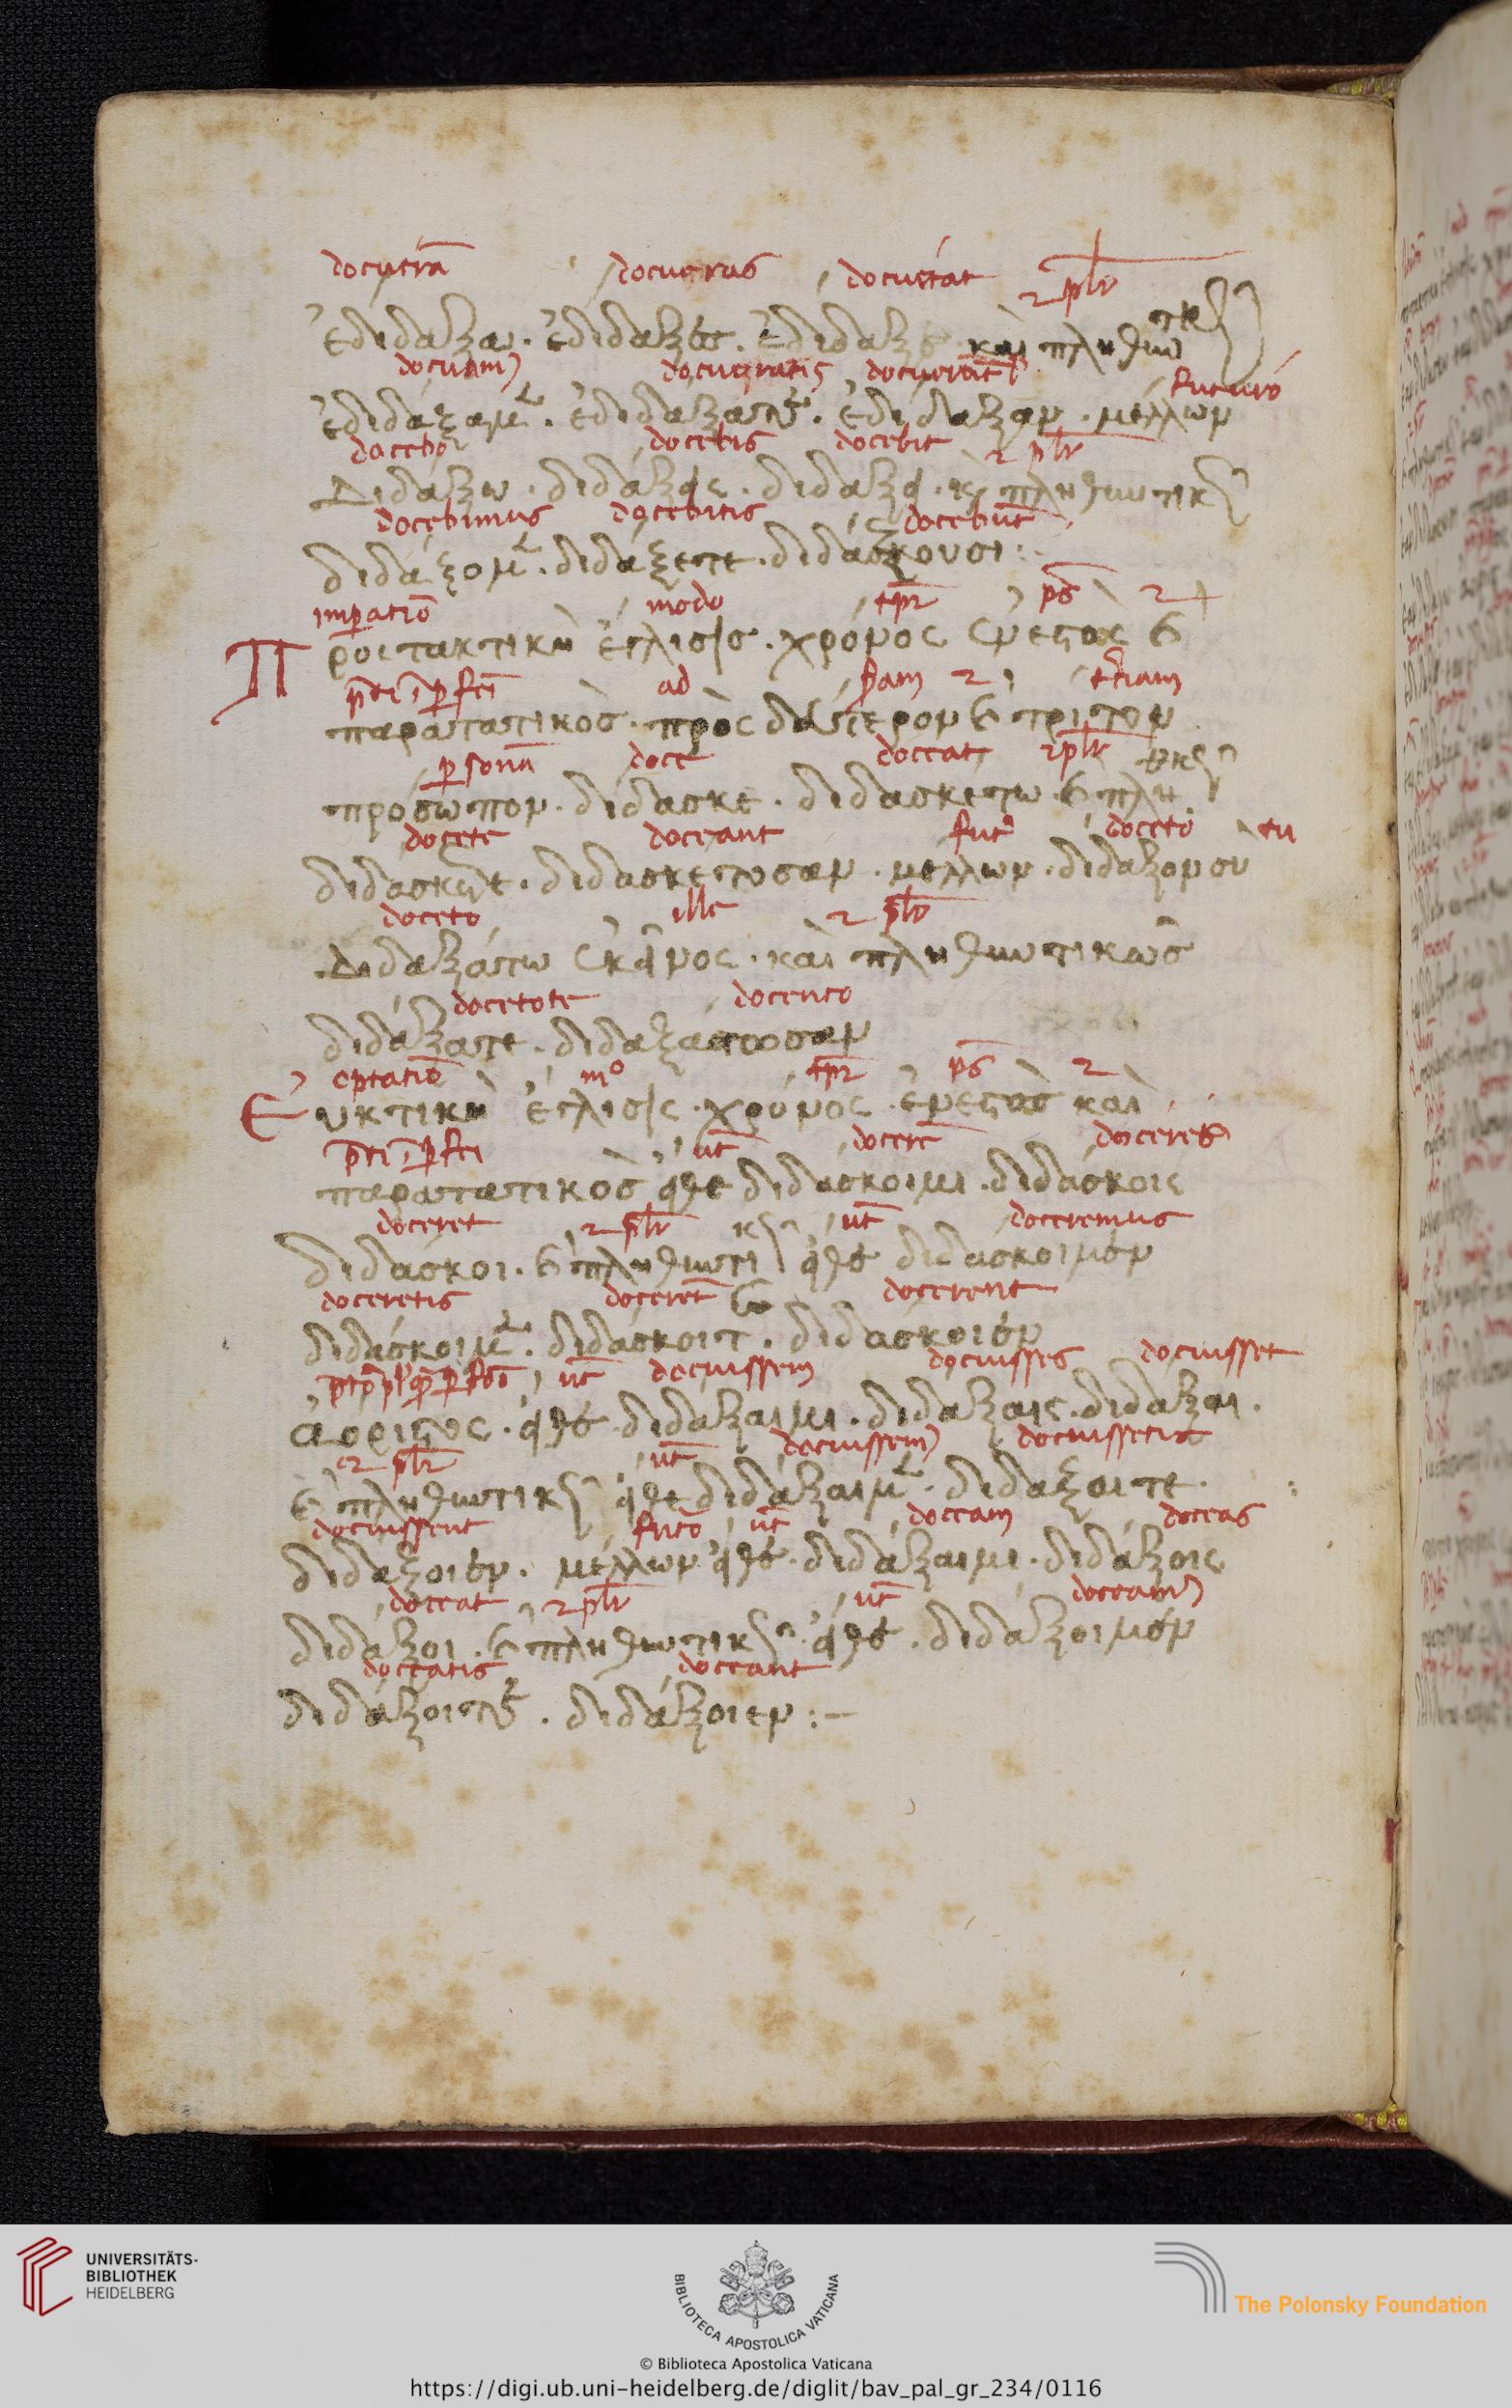 docuerā docueras docuerat ⁊ plr
ἐδίδαξα. ἐδίδαξας. ἐδίδαξε καὶ πληθυντικ
docueratis docuerāt futuro
ἐδιδάξαμ. ἐδιδάξατε. ἐδίδαξαν. μέλλων
docebo docebis docebit ⁊ plr
Διδάξω. διδάξεις. διδάξει. κ πληθυντικ
docebimus docebitis docebūt
διδάξομ. διδάξετε. διδάξουσι:
imperatiō modo tpr ps ⁊
Προστακτικὴ ἔγκλισις. χρόνος ἐνεστὼς καὶ
ad ⁊ tertiam
παρατατικὸς. πρὸς δεύτερον καὶ τρίτον
personā doce doceat ⁊ plr
πρόσωπον. δίδασκε. διδασκέτω καὶ πλη
docete doceant fut doceto tu
διδάσκετε. διδασκέτωσαν. μέλλων. δίδαξον σύ
doceto ille ⁊ plr
Διδαξάτω ἐκεῖνος. καὶ πληθυντικῶς
docetote docento
διδάξατε. διδαξάτωσαν
optatiō mº tpr ps ⁊
Εὐκτικὴ ἔγκλισις. χρόνος. ἐνεστὼς καὶ
ut docerē doceres
παρατατικὸς εἴθε διδάσκοιμι. διδάσκοις
doceret ⁊ plr ut doceremus
διδάσκοι. καὶ πληθυντικ εἴθε διδάσκοιμεν
doceretis docerēt docerent
διδάσκοιμ. διδάσκοιτ. διδάσκοιεν
ut docuissem docuisses docuisset
ἀόριστος. εἴθε. διδάξαιμι. διδάξαις. διδάξαι.
⁊ plr ut docuissetis
καὶ πληθυντικ εἴθε διδάξαιμ. διδάξοιτε.
docuissent futō ut doceam doceas
διδάξοιεν. μέλλων εἴθε. διδάξαιμι. διδάξοις
doceat ⁊ plr ut
διδάξοι. καὶ πληθυντικ εἴθε. διδάξοιμεν
doceatis doceant
διδάξοιτε. διδάξοιεν:—
UNIVERSITÄTS-
BIBLIOTHEK
HEIDELBERG
BIBLIOTECA APOSTOLICA VATICANA
The Polonsky Foundation
© Biblioteca Apostolica Vaticana
https://digi.ub.uni-heidelberg.de/diglit/bav_pal_gr_234/0116